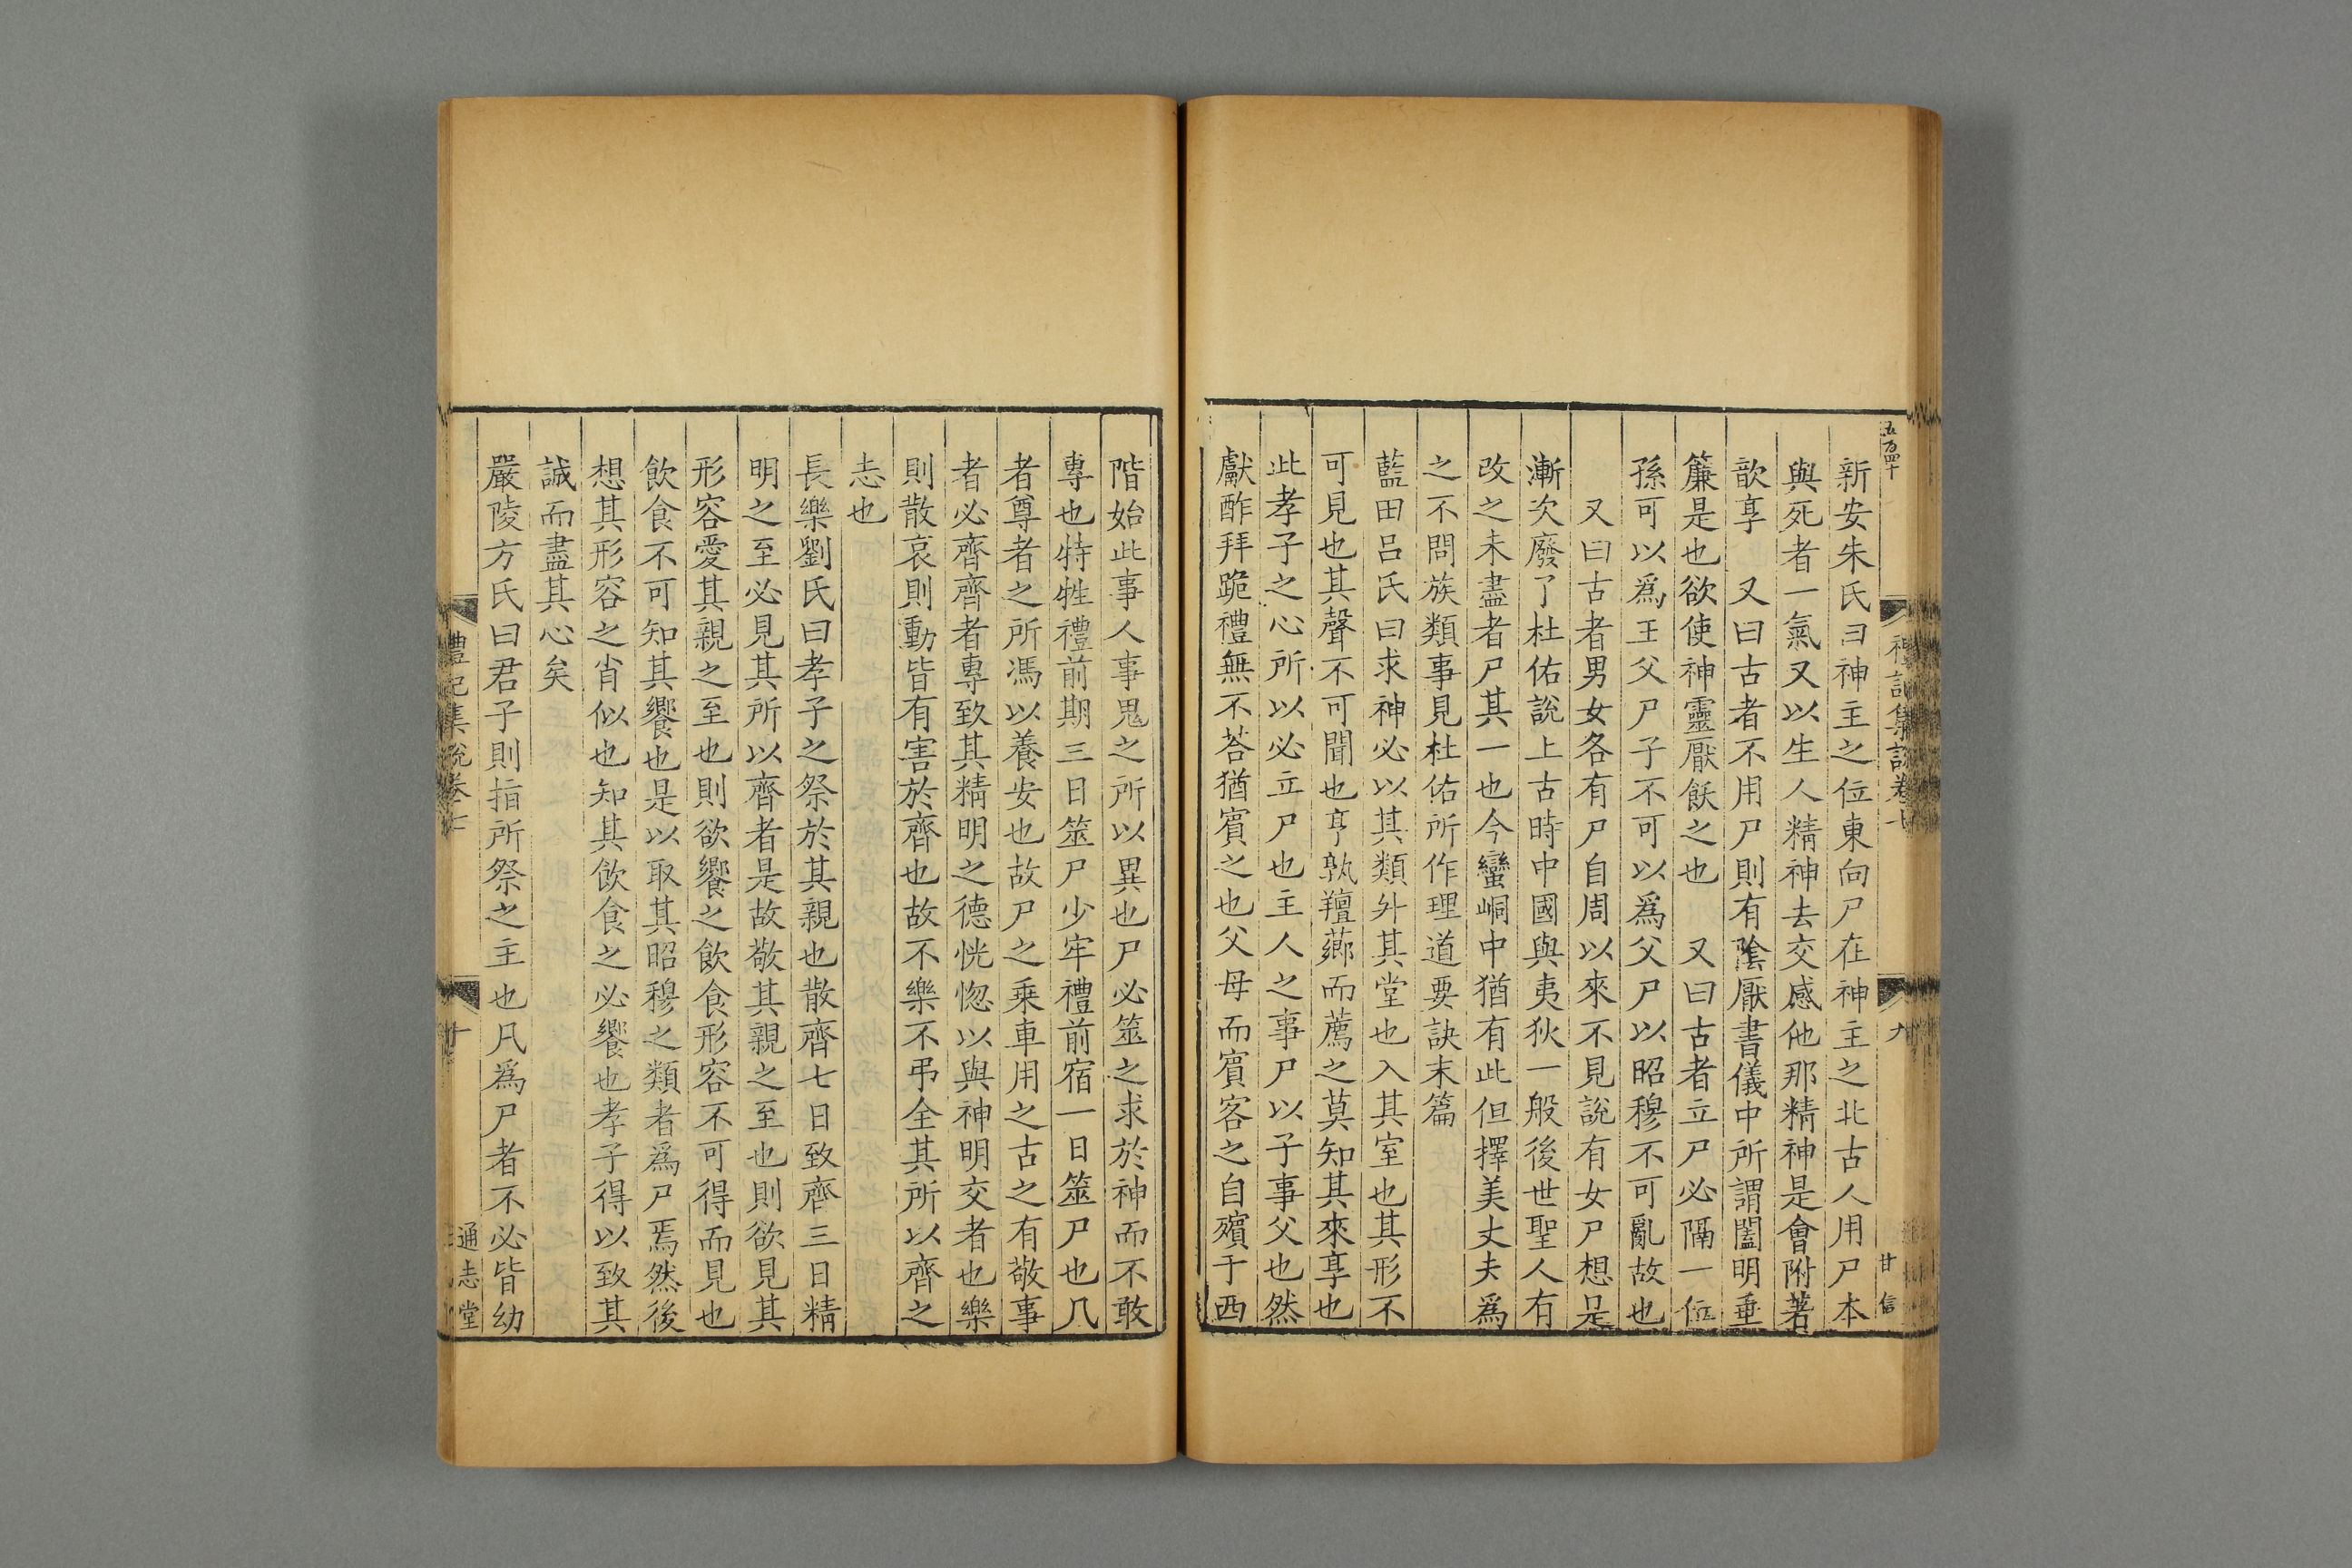 五百四十
禮記集說卷七
九
甘信
新安朱氏曰神主之位東向尸在神主之北古人用尸本
與死者一氣又以生人精神去交感他那精神是會附著
歆享　又曰古者不用尸則有陰厭書儀中所謂闔明垂
簾是也欲使神靈厭飫之也　又曰古者立尸必隔一位
孫可以爲王父尸子不可以爲父尸以昭穆不可亂故也
又曰古者男女各有尸自周以來不見說有女尸想是
漸次廢了杜佑說上古時中國與夷狄一般後世聖人有
改之未盡者尸其一也今蠻峒中猶有此但擇美丈夫爲
之不問族類事見杜佑所作理道要訣末篇
藍田吕氏曰求神必以其類外其堂也入其室也其形不
可見也其聲不可聞也亨孰羶薌而薦之莫知其來享也
此孝子之心所以必立尸也主人之事尸以子事父也然
獻酢拜跪禮無不荅猶賓之也父母而賓客之自殯于西
階始此事人事鬼之所以異也尸必筮之求於神而不敢
專也特牲禮前期三日筮尸少牢禮前宿一日筮尸也几
者尊者之所馮以養安也故尸之乗車用之古之有敬事
者必齊齊者專致其精明之德恍惚以與神明交者也樂
則散哀則動皆有害於齊也故不樂不弔全其所以齊之
志也
長樂劉氏曰孝子之祭於其親也散齊七日致齊三日精
明之至必見其所以齊者是故敬其親之至也則欲見其
形容愛其親之至也則欲饗之飲食形容不可得而見也
飲食不可知其饗也是以取其昭穆之類者爲尸焉然後
想其形容之肖似也知其飲食之必饗也孝子得以致其
誠而盡其心矣
嚴陵方氏曰君子則指所祭之主也凡爲尸者不必皆幼
禮記集說卷七
十
通志堂